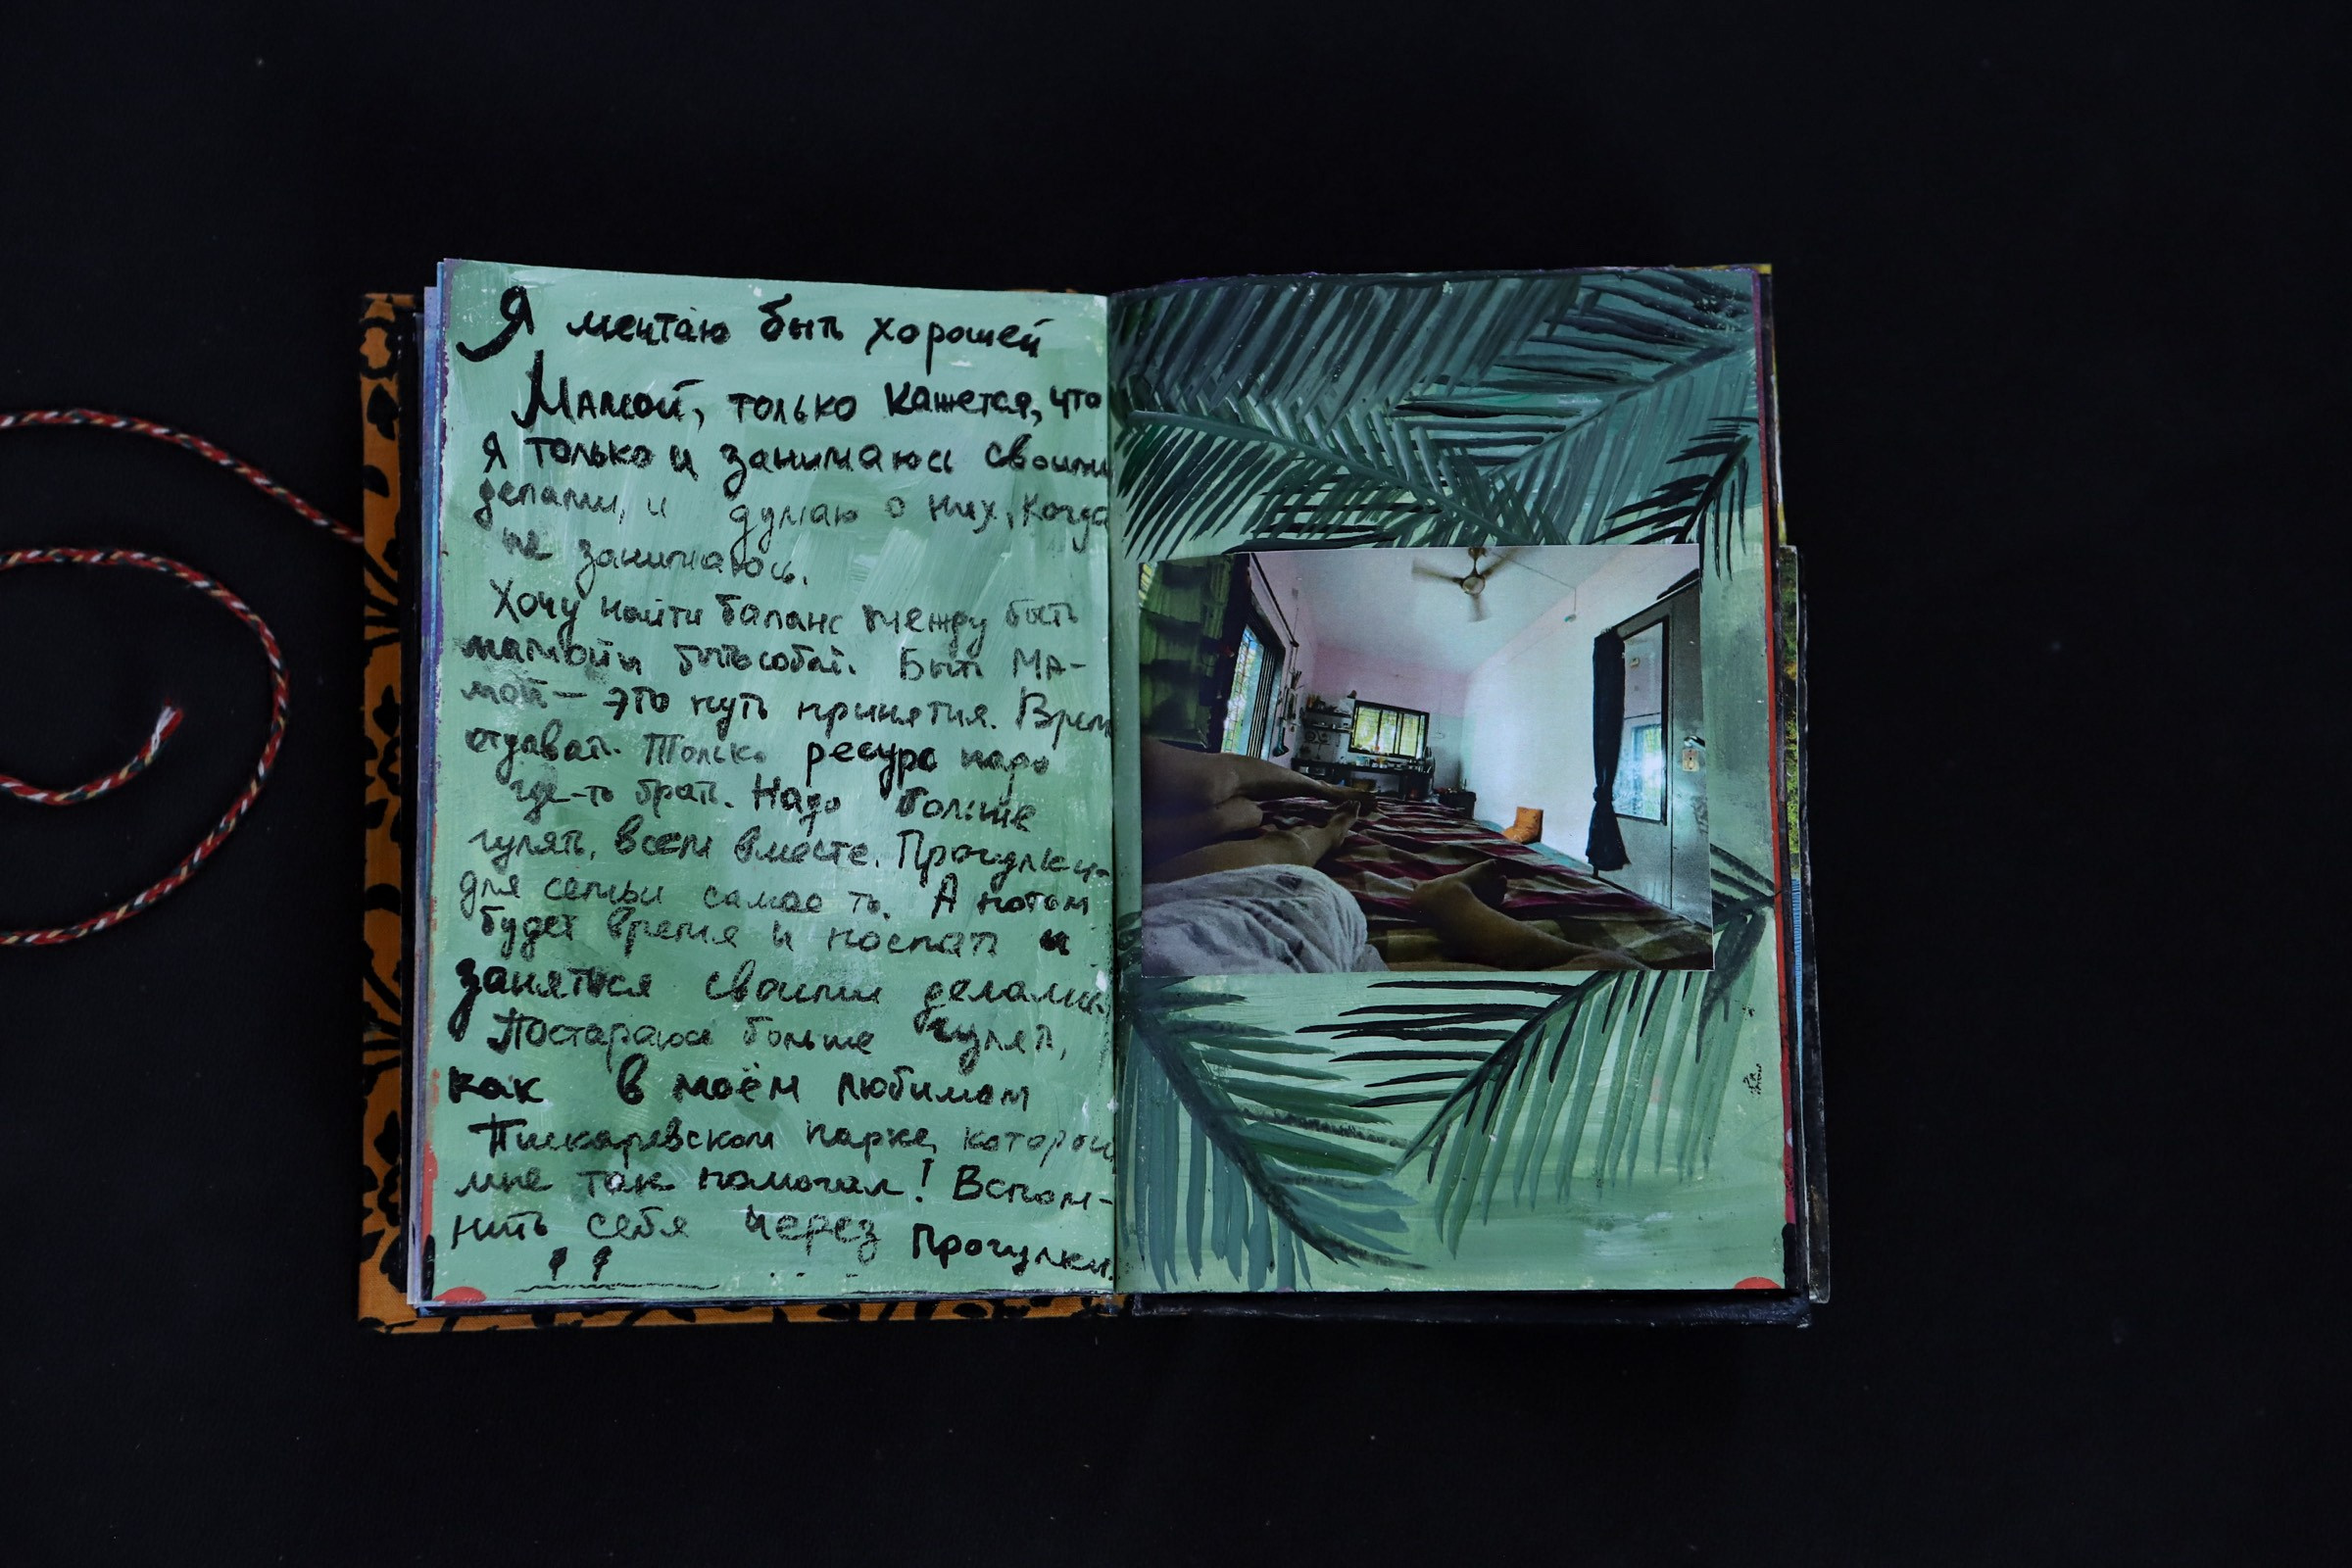 Я мечтаю быть хорошей
Мамой, только кажется, что
я только и занимаюсь своими
делами, и думаю о них, когда
не занимаюсь.
Хочу найти баланс между быть
мамой и быть собой. Быть ма-
мой — это путь принятия. Время
отдавать. Только ресурс надо
где-то брать. Надо больше
гулять, всем вместе. Прогулки -
для семьи самое то. А потом
будет время и поспать и
заняться своими делами.
Постараюсь больше гулять,
как в моём любимом
Пискаревском парке, который
мне так помогал! Вспом-
нить себя через прогулки.